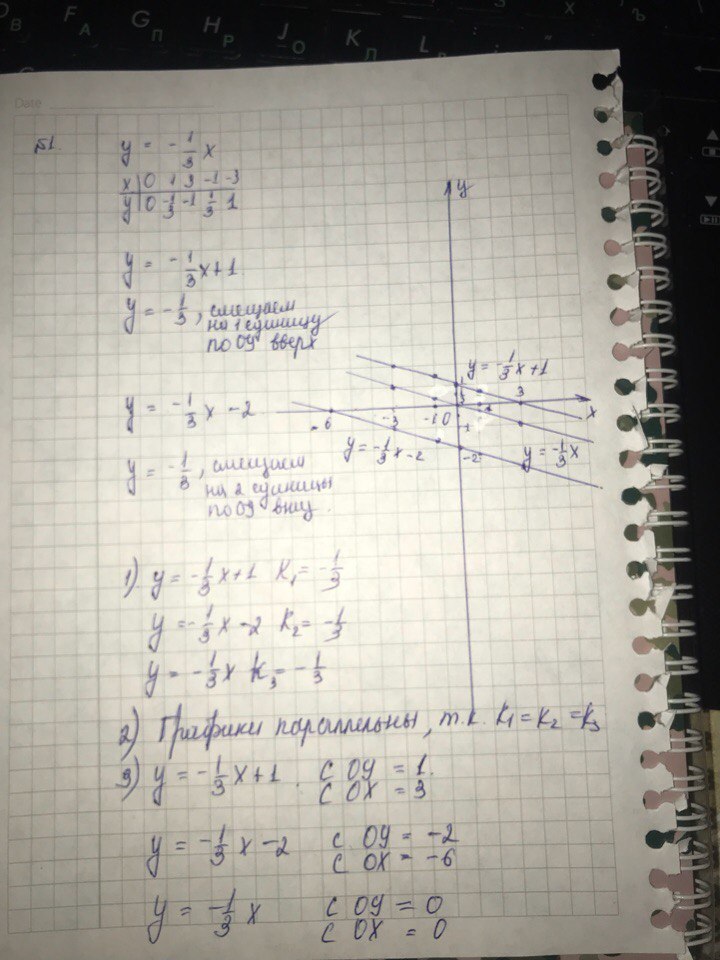 O
В
F
А
G
П
H
Р
J
О
K
Л
L
Date
№1.
y = -1/3 x
x | 0 1 3 -1 -3
y | 0 -1/3 -1 1/3 1
y = -1/3 x+1
y = -1/3, смещаем
на 1 единицу
по OY вверх
y = -1/3 x -2
y = -1/3, смещаем
на 2 единицы
по OY вниз.
y
y = -1/3 x+1
1
3
x
-6
-3
-1
0
1
y = -1/3 x -2
-2
y = -1/3 x
1) y = -1/3 x+1 K₁ = -1/3
y = -1/3 x -2 K₂ = -1/3
y = -1/3 x K₃ = -1/3
2) Графики параллельны, т.к. K₁ = K₂ = K₃
3) y = -1/3 x+1. С OY = 1.
С OX = 3
y = -1/3 x -2 С OY = -2
С OX = -6
y = -1/3 x С OY = 0
С OX = 0